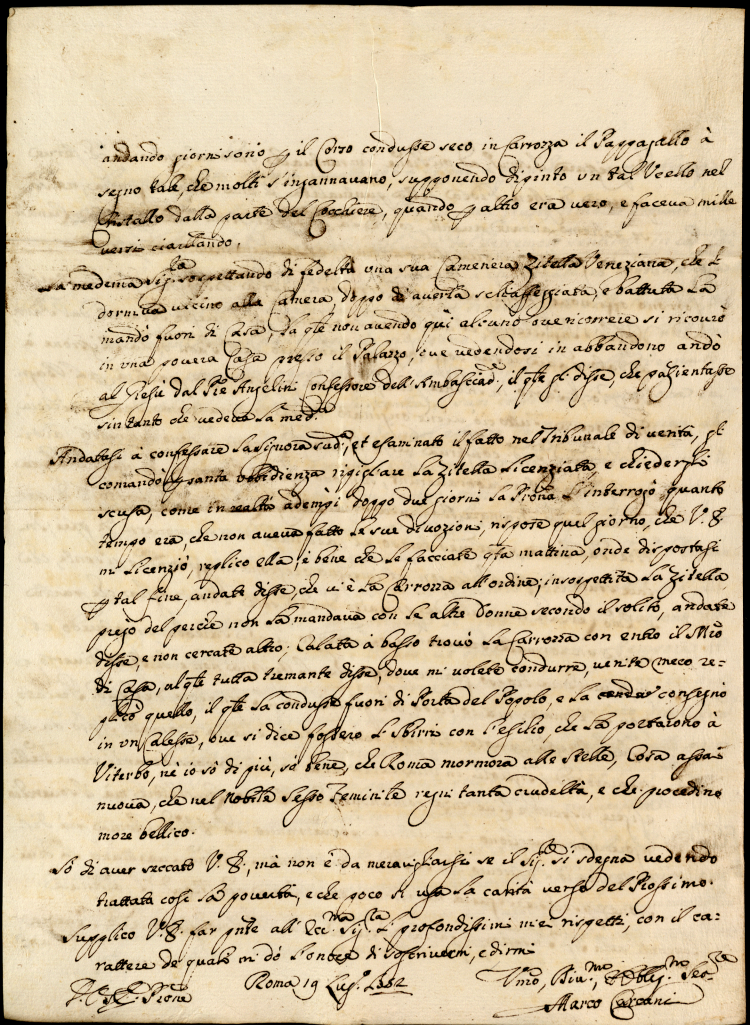 andando giorni sono p il Corso condusse seco in Carrozza il Pappagallo à
segno tale, che molti s'ingannavano, supponendo dipinto un tal Ucello nel
Cristallo dalla parte del Cocchiere, quando p altro era vero, e faceva mille
versi ciarlando.
La medema Sig.ra sospettando di fedeltà una sua Cameriera Zitella Veneziana, che
dormiva vicino alla Camera, doppo di averla schiaffeggiata, e battuta La
mandò fuori di Casa, La qle non avendo quì alcuno ove ricorrere si ricourò
in una povera Casa presso il Palazzo, ove vedendosi in abbandono andò
al Giesù dal Pre Angelini Confessore dell'Ambasciad.e, il qle gl disse, che pazientasse
sin tanto che vedeva La med.a
Andatasi à confessare La Signora sud.a, et esaminato il fatto nel Tribunale di verità, gl
comandò p santa obbidienza ripigliare La Zitella Licenziata, e chiederli
scusa, come in realtà adempì doppo due giorni La Prona L'interrogò quanto
tempo era, che non aveva fatto Le sue divozioni, rispose quel giorno, che V.E.
mi Licenziò, replicò ella, è bene che Le facciate qta mattina, onde dispostasi
p tal fine, andate disse, che v'è La Carrozza all'ordine; insospettita La Zitella
del perche non La mandava con Le altre Donne secondo il solito, andate
disse, e non cercate altro; Calata à basso trovò La Carrozza con entro il Mro
di Casa, al qle tutta tremante disse, dove mi volete condurre, venite meco re=
plicò quello, il qle La condusse fuori di Porta del Popolo, e La consegnò
in un Calesse, ove si dice fossero Li Sbirri con l'esilio, che La portarono à
Viterbo, nè io sò di più, sò bene, che Roma mormora alle Stelle, Cosa assai
nuova, che nel Nobile Sesso Feminile regni tanta crudeltà, e che procedino
more bellico.
Sò di aver seccato V.E., mà non è da meravigliarsi se il Sig.re si sdegna vedendo
trattata così La povertà, e che poco si usa La carità verso del Prossimo.
Supplico V.E. far pnte all'Ecc.ma Sig.ra Li profondissimi miei rispetti, con il ca=
rattere de quali mi dò L'onore di soscrivermi, e dirmi
Roma 19 Lug.o 1752
Umo, Div.mo, ed Oblig.mo Ser.re
Marco